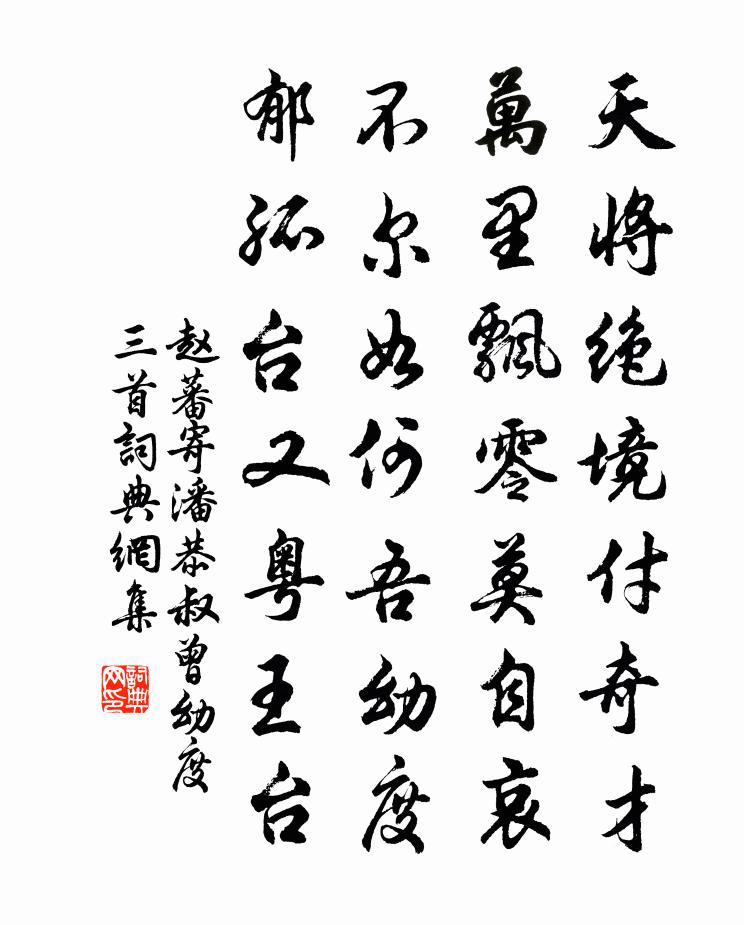 天将绝境付奇才
萬里飄零莫自哀
不尔如何吾幼度
郁孤台又粤王台
赵蕃寄潘恭叔曾幼度
三首詞典網集
詞典网印